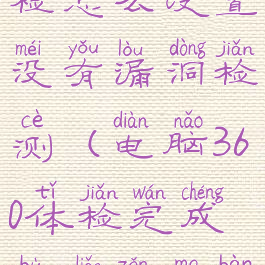 méi yǒu lòu dòng jiǎn
没有漏洞检
cè diàn nǎo
测(电脑36
tǐ jiǎn wán chéng
0体检完成